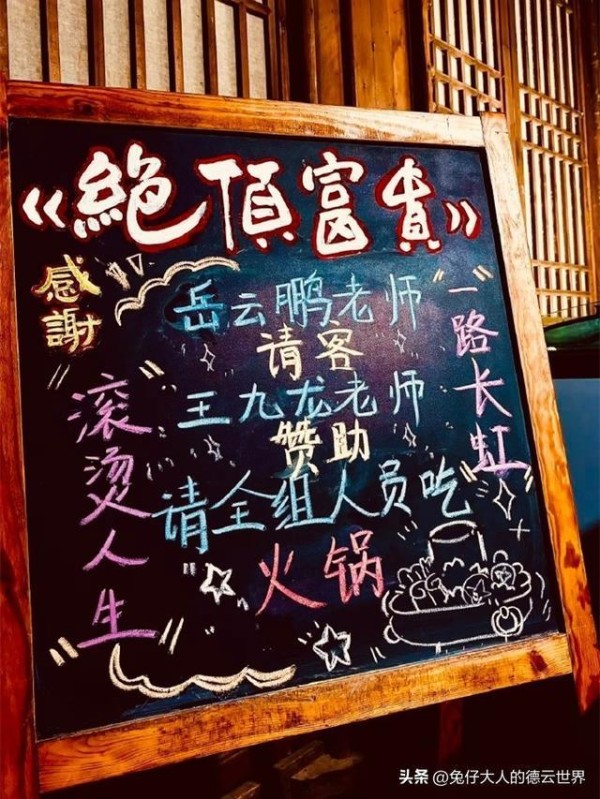 《絕頂富貴》
感謝
岳云鹏老师
请客
王九龙老师
赞助
请全组人员吃
火锅
"滚烫人生"
"一路长虹"
头条 @兔仔大人的德云世界